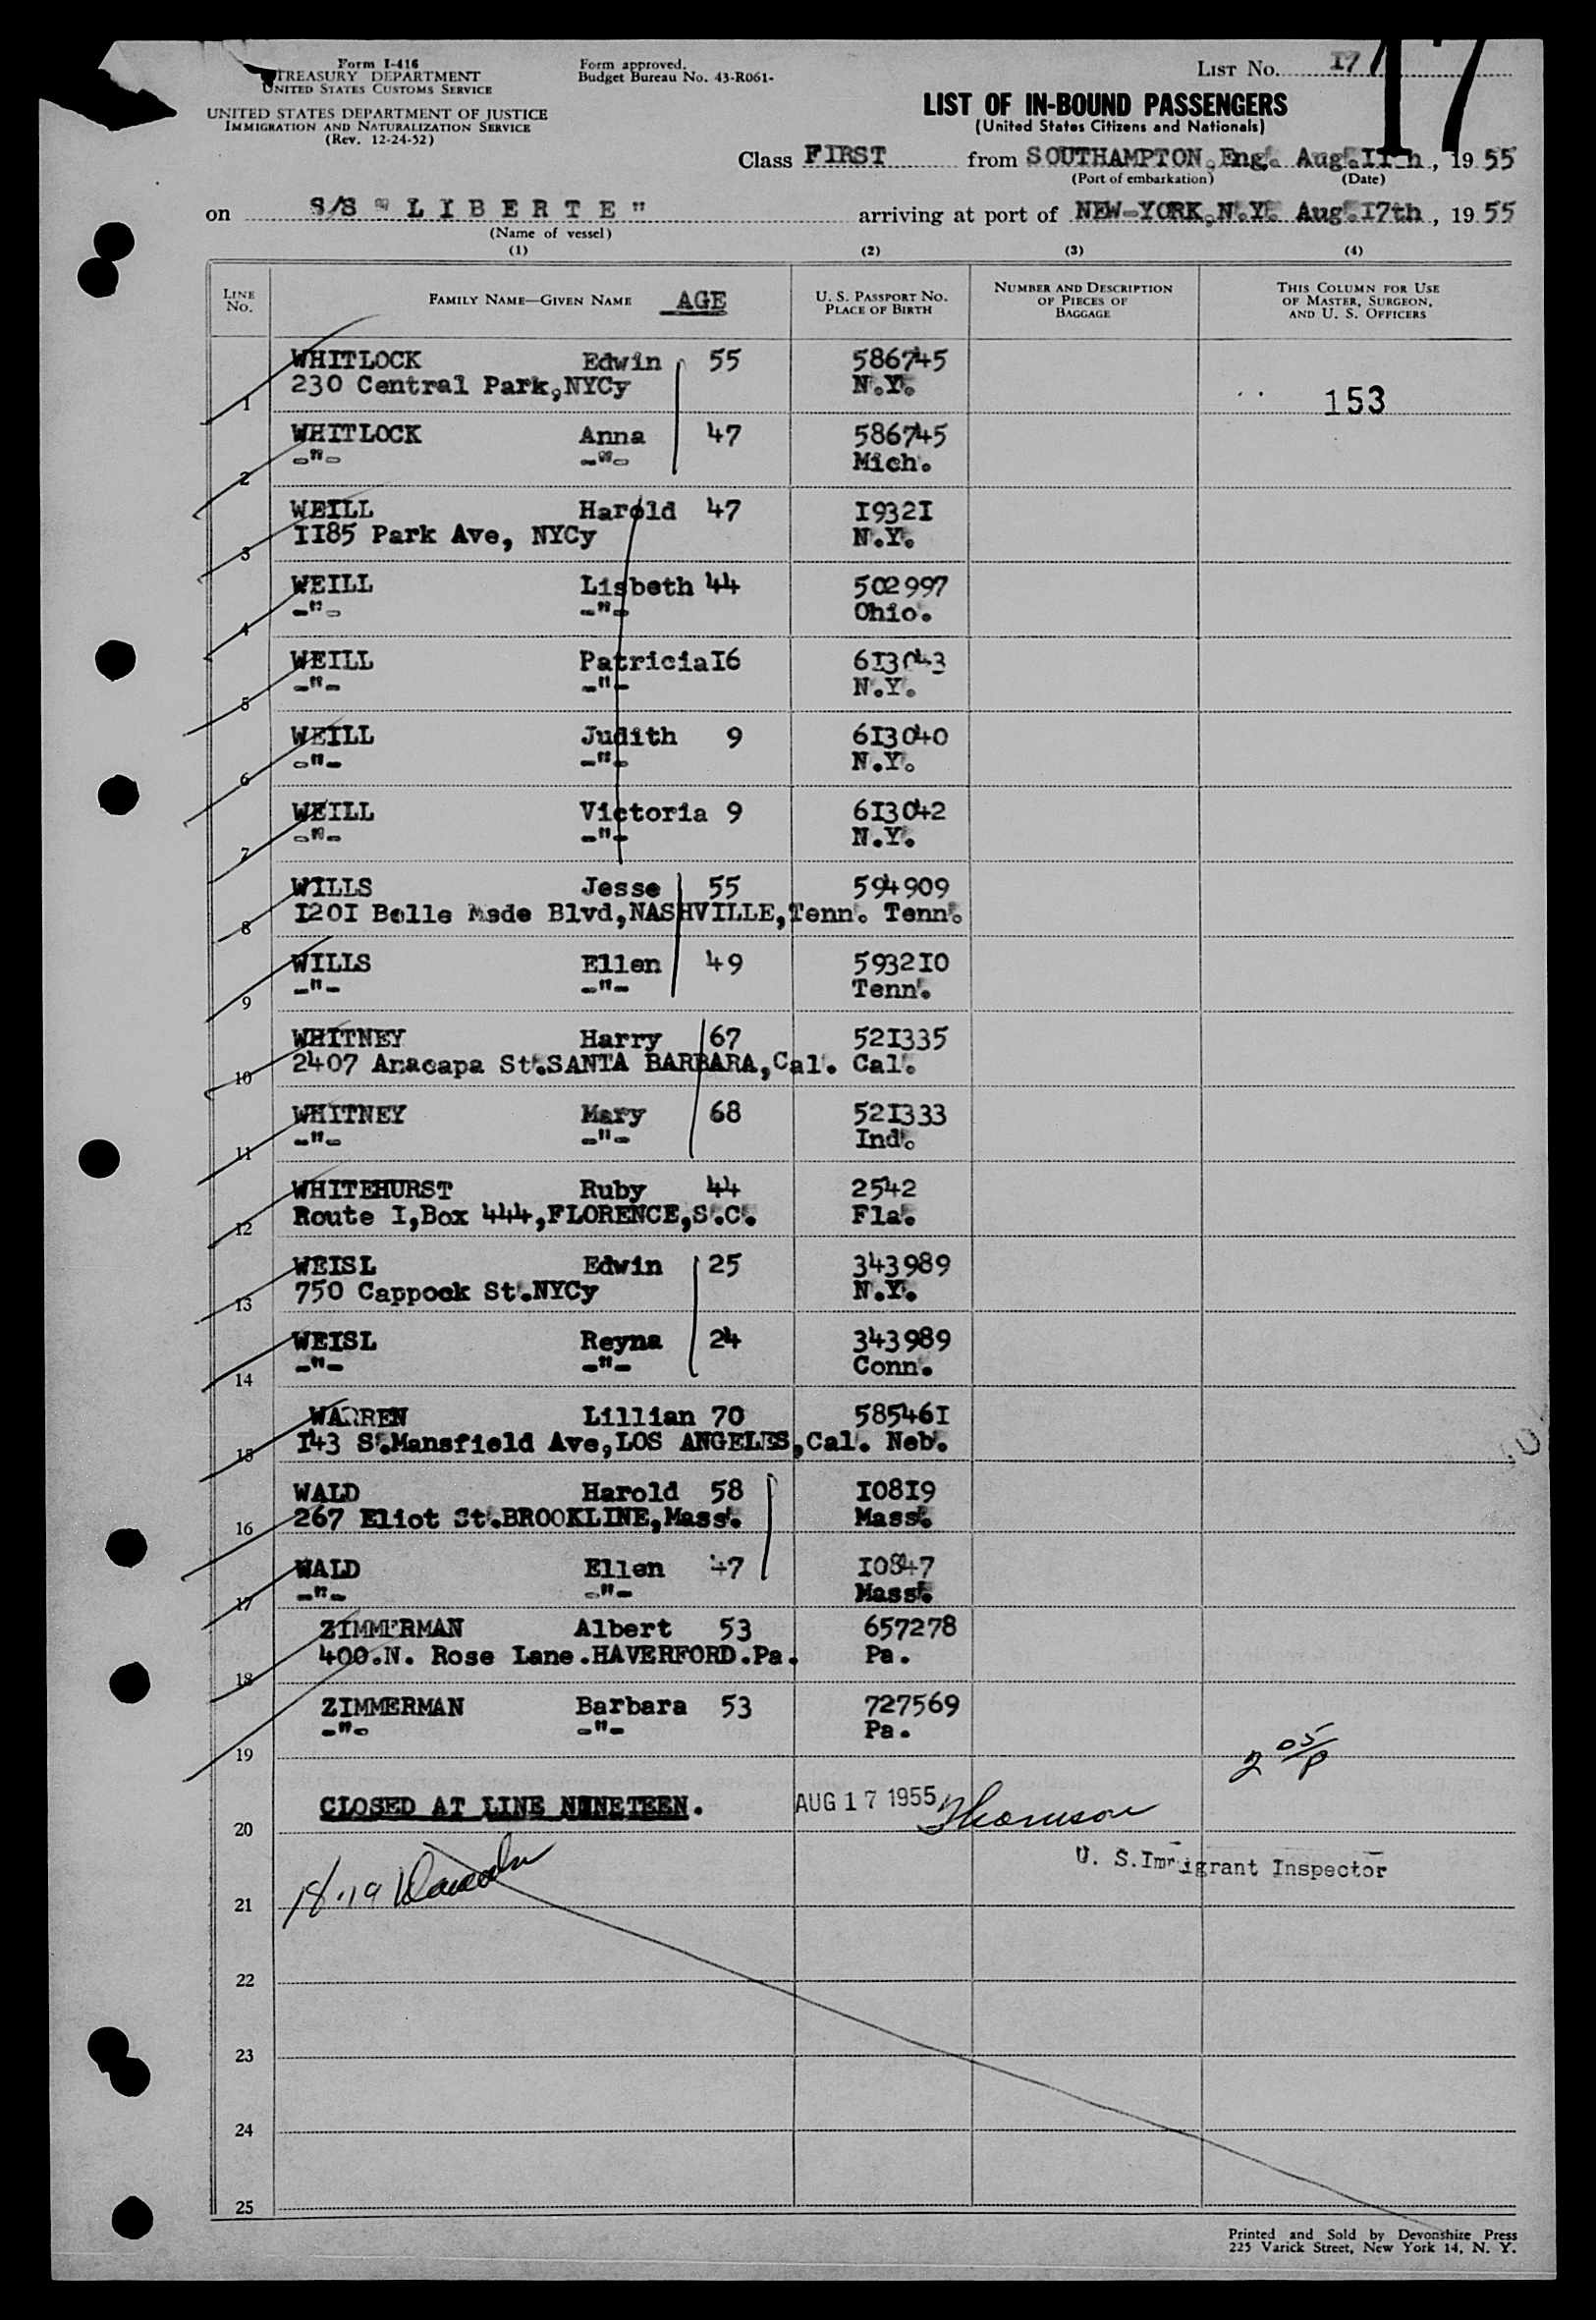 Form I-416
TREASURY DEPARTMENT
UNITED STATES CUSTOMS SERVICE
UNITED STATES DEPARTMENT OF JUSTICE
IMMIGRATION AND NATURALIZATION SERVICE
(Rev. 12-24-52)
Form approved.
Budget Bureau No. 43-R061-
LIST No. 17
17
LIST OF IN-BOUND PASSENGERS
(United States Citizens and Nationals)
Class FIRST from SOUTHAMPTON, Eng. Aug. IIth, 19 55
(Port of embarkation) (Date)
on S/S "LIBERTE" arriving at port of NEW-YORK, N.Y. Aug. I7th, 19 55
(Name of vessel)
(1) (2) (3) (4)
LINE No. FAMILY NAME—GIVEN NAME AGE U. S. PASSPORT No. PLACE OF BIRTH NUMBER AND DESCRIPTION OF PIECES OF BAGGAGE THIS COLUMN FOR USE OF MASTER, SURGEON, AND U. S. OFFICERS
WHITLOCK Edwin 55 586745
1 230 Central Park, NYCy N.Y. 153
WHITLOCK Anna 47 586745
2 -"- -"- Mich.
WEILL Harold 47 I932I
3 II85 Park Ave, NYCy N.Y.
WEILL Lisbeth 44 502997
4 -"- -"- Ohio.
WEILL Patricia I6 6I3043
5 -"- -"- N.Y.
WEILL Judith 9 6I3040
6 -"- -"- N.Y.
WEILL Victoria 9 6I3042
7 -"- -"- N.Y.
WILLS Jesse 55 594909
8 I20I Belle Made Blvd, NASHVILLE, Tenn. Tenn.
WILLS Ellen 49 5932I0
9 -"- -"- Tenn.
WHITNEY Harry 67 52I335
10 2407 Anacapa St. SANTA BARBARA, Cal. Cal.
WHITNEY Mary 68 52I333
11 -"- -"- Ind.
WHITEHURST Ruby 44 2542
12 Route I, Box 444, FLORENCE, S.C. Fla.
WEISL Edwin 25 343989
13 750 Cappock St. NYCy N.Y.
WEISL Reyna 24 343989
14 -"- -"- Conn.
WARREN Lillian 70 58546I
15 I43 S. Mansfield Ave, LOS ANGELES, Cal. Neb.
WALD Harold 58 I08I9
16 267 Eliot St. BROOKLINE, Mass. Mass.
WALD Ellen 47 I0847
17 -"- -"- Mass.
ZIMMERMAN Albert 53 657278
18 400.N. Rose Lane.HAVERFORD.Pa. Pa.
ZIMMERMAN Barbara 53 727569
19 -"- -"- Pa.
2 05/P
20 CLOSED AT LINE NINETEEN. AUG 17 1955 Thomson
U. S. Immigrant Inspector
21 18.19
22
23
24
25
Printed and Sold by Devonshire Press
225 Varick Street, New York 14, N. Y.